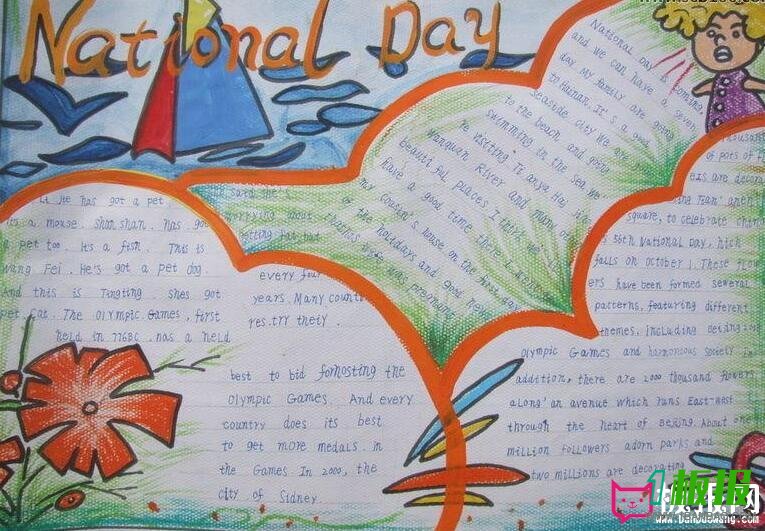 National Day
National Day is coming,
and we can have a seven
day. My family are going
to Hainan. It's a good
seaside city we are
to the beach and going
swimming in the sea. We
be visiting Tianya Hai
Wanquan River and many ot
beautiful places I think we
have a good time there
my cousin's house on the first day
of the holidays and
was pregnant
Li He has got a pet
it's a mouse. Shan shan. has got
a pet too. It's a fish. This is
Wang Fei. He's got a pet dog.
And this is Tingting. Shes got
pet Cat. The Olympic. Games, first
held in 776BC. has a held
said she's
worrying about
getting fat, but
every four
years. Many count
res.try theiy.
best to bid fornosting the
Olympic Games. And every
country does its best
to get more medals. in
the Games In 2000, the
city of Sidney
thousand
pots of fl
ers are decora
square, to celebrate china
s 56th National Day, hich
falls on october 1. These flow
ers have been formed several
patterns, featuring different
themes, including
Olympic Games and harmonous society In
addition, there are 2000 thousand flowers
along' an avenue which runs East-West
through the heart of Beijing. About one
million followers adorn parks and
two millions are decorating
1板报
板报网
www.banbaowang.com